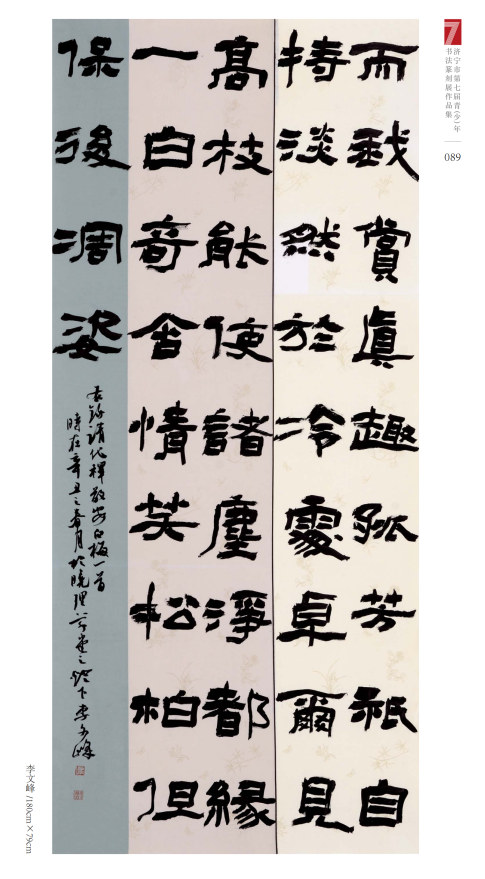 7
济宁市第七届青(少)年
书法篆刻展作品集
089
而我賞眞趣孤芳祇自
持淡然於冷處卓爾見
髙枝能使諸塵淨都緣
一白奇含情笑松柏但
保後凋姿
右錄清代釋敬安白梅一首
時在辛丑之春月於曉理堂之燈下李文峰
李文峰 /180cm×79cm